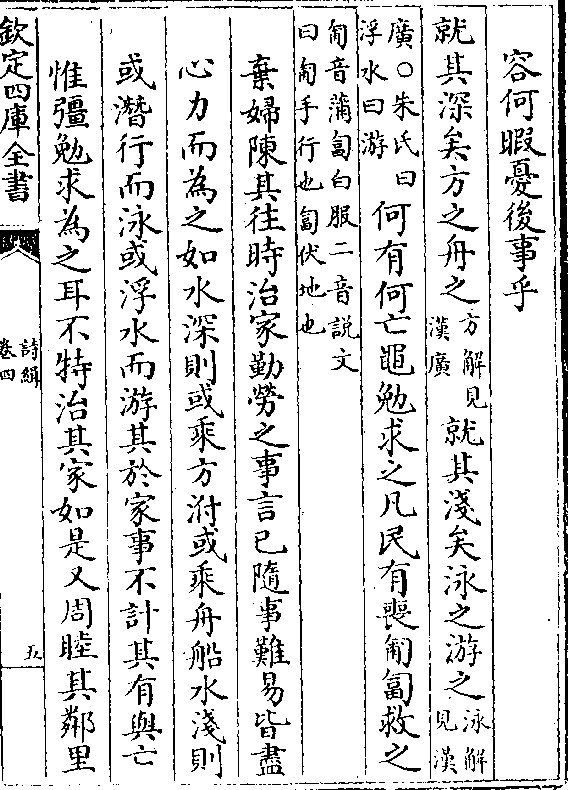 容何暇憂後事乎
就其深矣方之舟之方解見漢廣就其淺矣泳之游之泳解見漢
廣○朱氏曰浮水曰游何有何亡黽勉求之凡民有喪匍匐救之
匍音蒲匐白服二音説文曰匍手行也匐伏地也
棄婦陳其往時治家勤勞之事言已隨事難易皆盡
心力而為之如水深則或乘方泭或乘舟船水淺則
或潛行而泳或浮水而游其於家事不計其有與亡
惟彊勉求為之耳不特治其家如是又周睦其鄰里
欽定四庫全書
詩緝
卷四
五